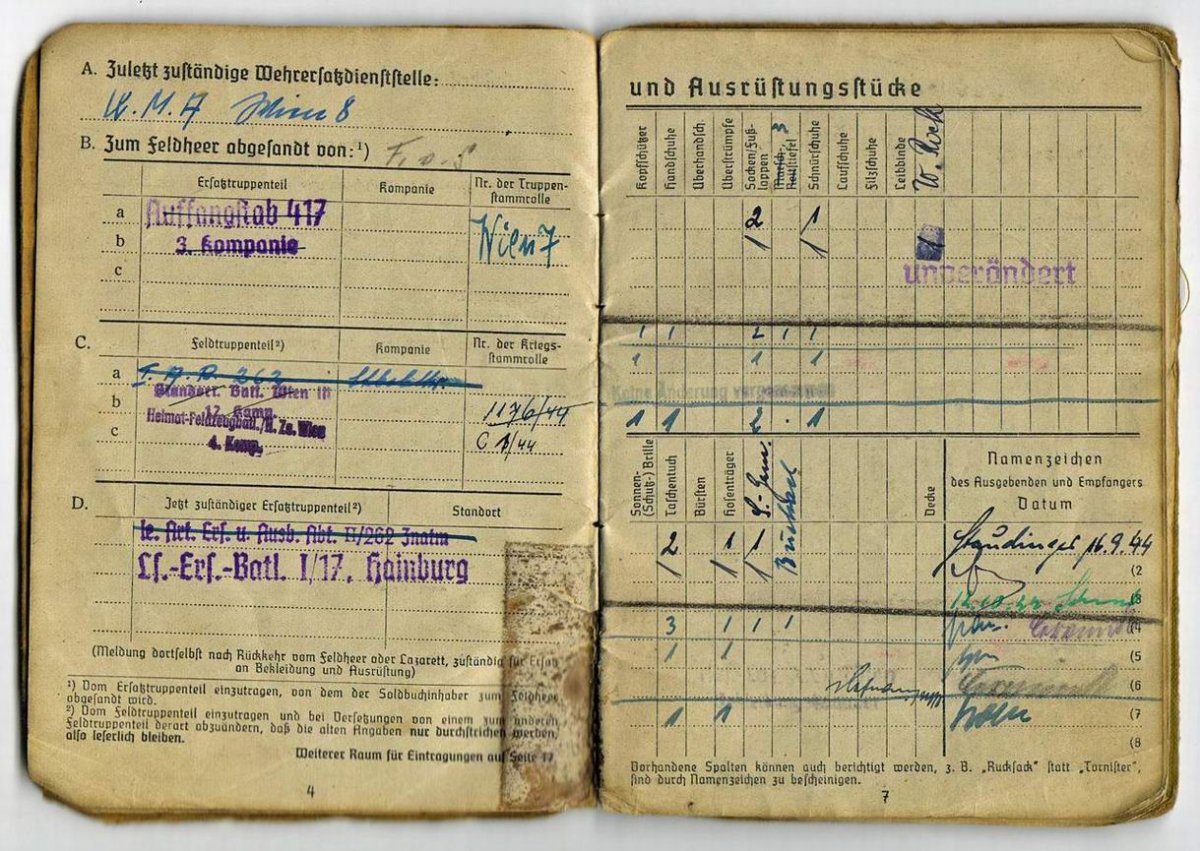 A. Zuletzt zuständige Wehrersatzdienststelle:
W. M. A Wien 8
B. Zum Feldheer abgesandt von:¹)
Ersatztruppenteil Kompanie Nr. der Truppen-
stammrolle
a Auffangstab 417
b 3. Kompanie Wien 7
c
C. Feldtruppenteil²) Kompanie Nr. der Kriegs-
stammrolle
a 262
Standort. Batl. Wien
b 12. Komp. 1176/44
Heimat-Feldzeugbatl./H. Za. Wien
c 4. Komp. C 1/44
D. Jetzt zuständiger Ersatztruppenteil²) Standort
le. Art. Ers. u. Ausb. Abt. II/262 Znaim
Ls.-Ers.-Batl. I/17, Hainburg
(Meldung dortselbst nach Rückkehr vom Feldheer oder Lazarett, zuständig für Ersatz
an Bekleidung und Ausrüstung)
¹) Vom Ersatztruppenteil einzutragen, von dem der Soldbuchinhaber zum Feldheer
abgesandt wird.
²) Vom Feldtruppenteil einzutragen und bei Versetzungen von einem zum anderen
Feldtruppenteil derart abzuändern, daß die alten Angaben nur durchstrichen werden,
also leserlich bleiben.
Weiterer Raum für Eintragungen auf Seite 17
4
und Ausrüstungsstücke
Kopfschützer
Handschuhe
Überhandsch.
Überstrümpfe
Socken/Fuß-
lappen
Schnürschuhe
Laufschuhe
Filzschuhe
Leibbinde
W. Rock
2 1
1 1
unverändert
1 1 2 1 1
1 1 1
Keine Änderung vorgenommen
1 1 2 1
Sonnen-
(Schutz-) Brille
Taschentuch
Bürsten
Hosenträger
Decke
Namenzeichen
des Ausgebenden und Empfängers
Datum
2 1 1 Staudinger 16.9.44
1 1 1 (2
3 1 1 1 (4
1 1 (5
(6
1 1 (7
(8
Vorhandene Spalten können auch berichtigt werden, z. B. „Rucksack“ statt „Tornister“,
sind durch Namenzeichen zu bescheinigen.
7